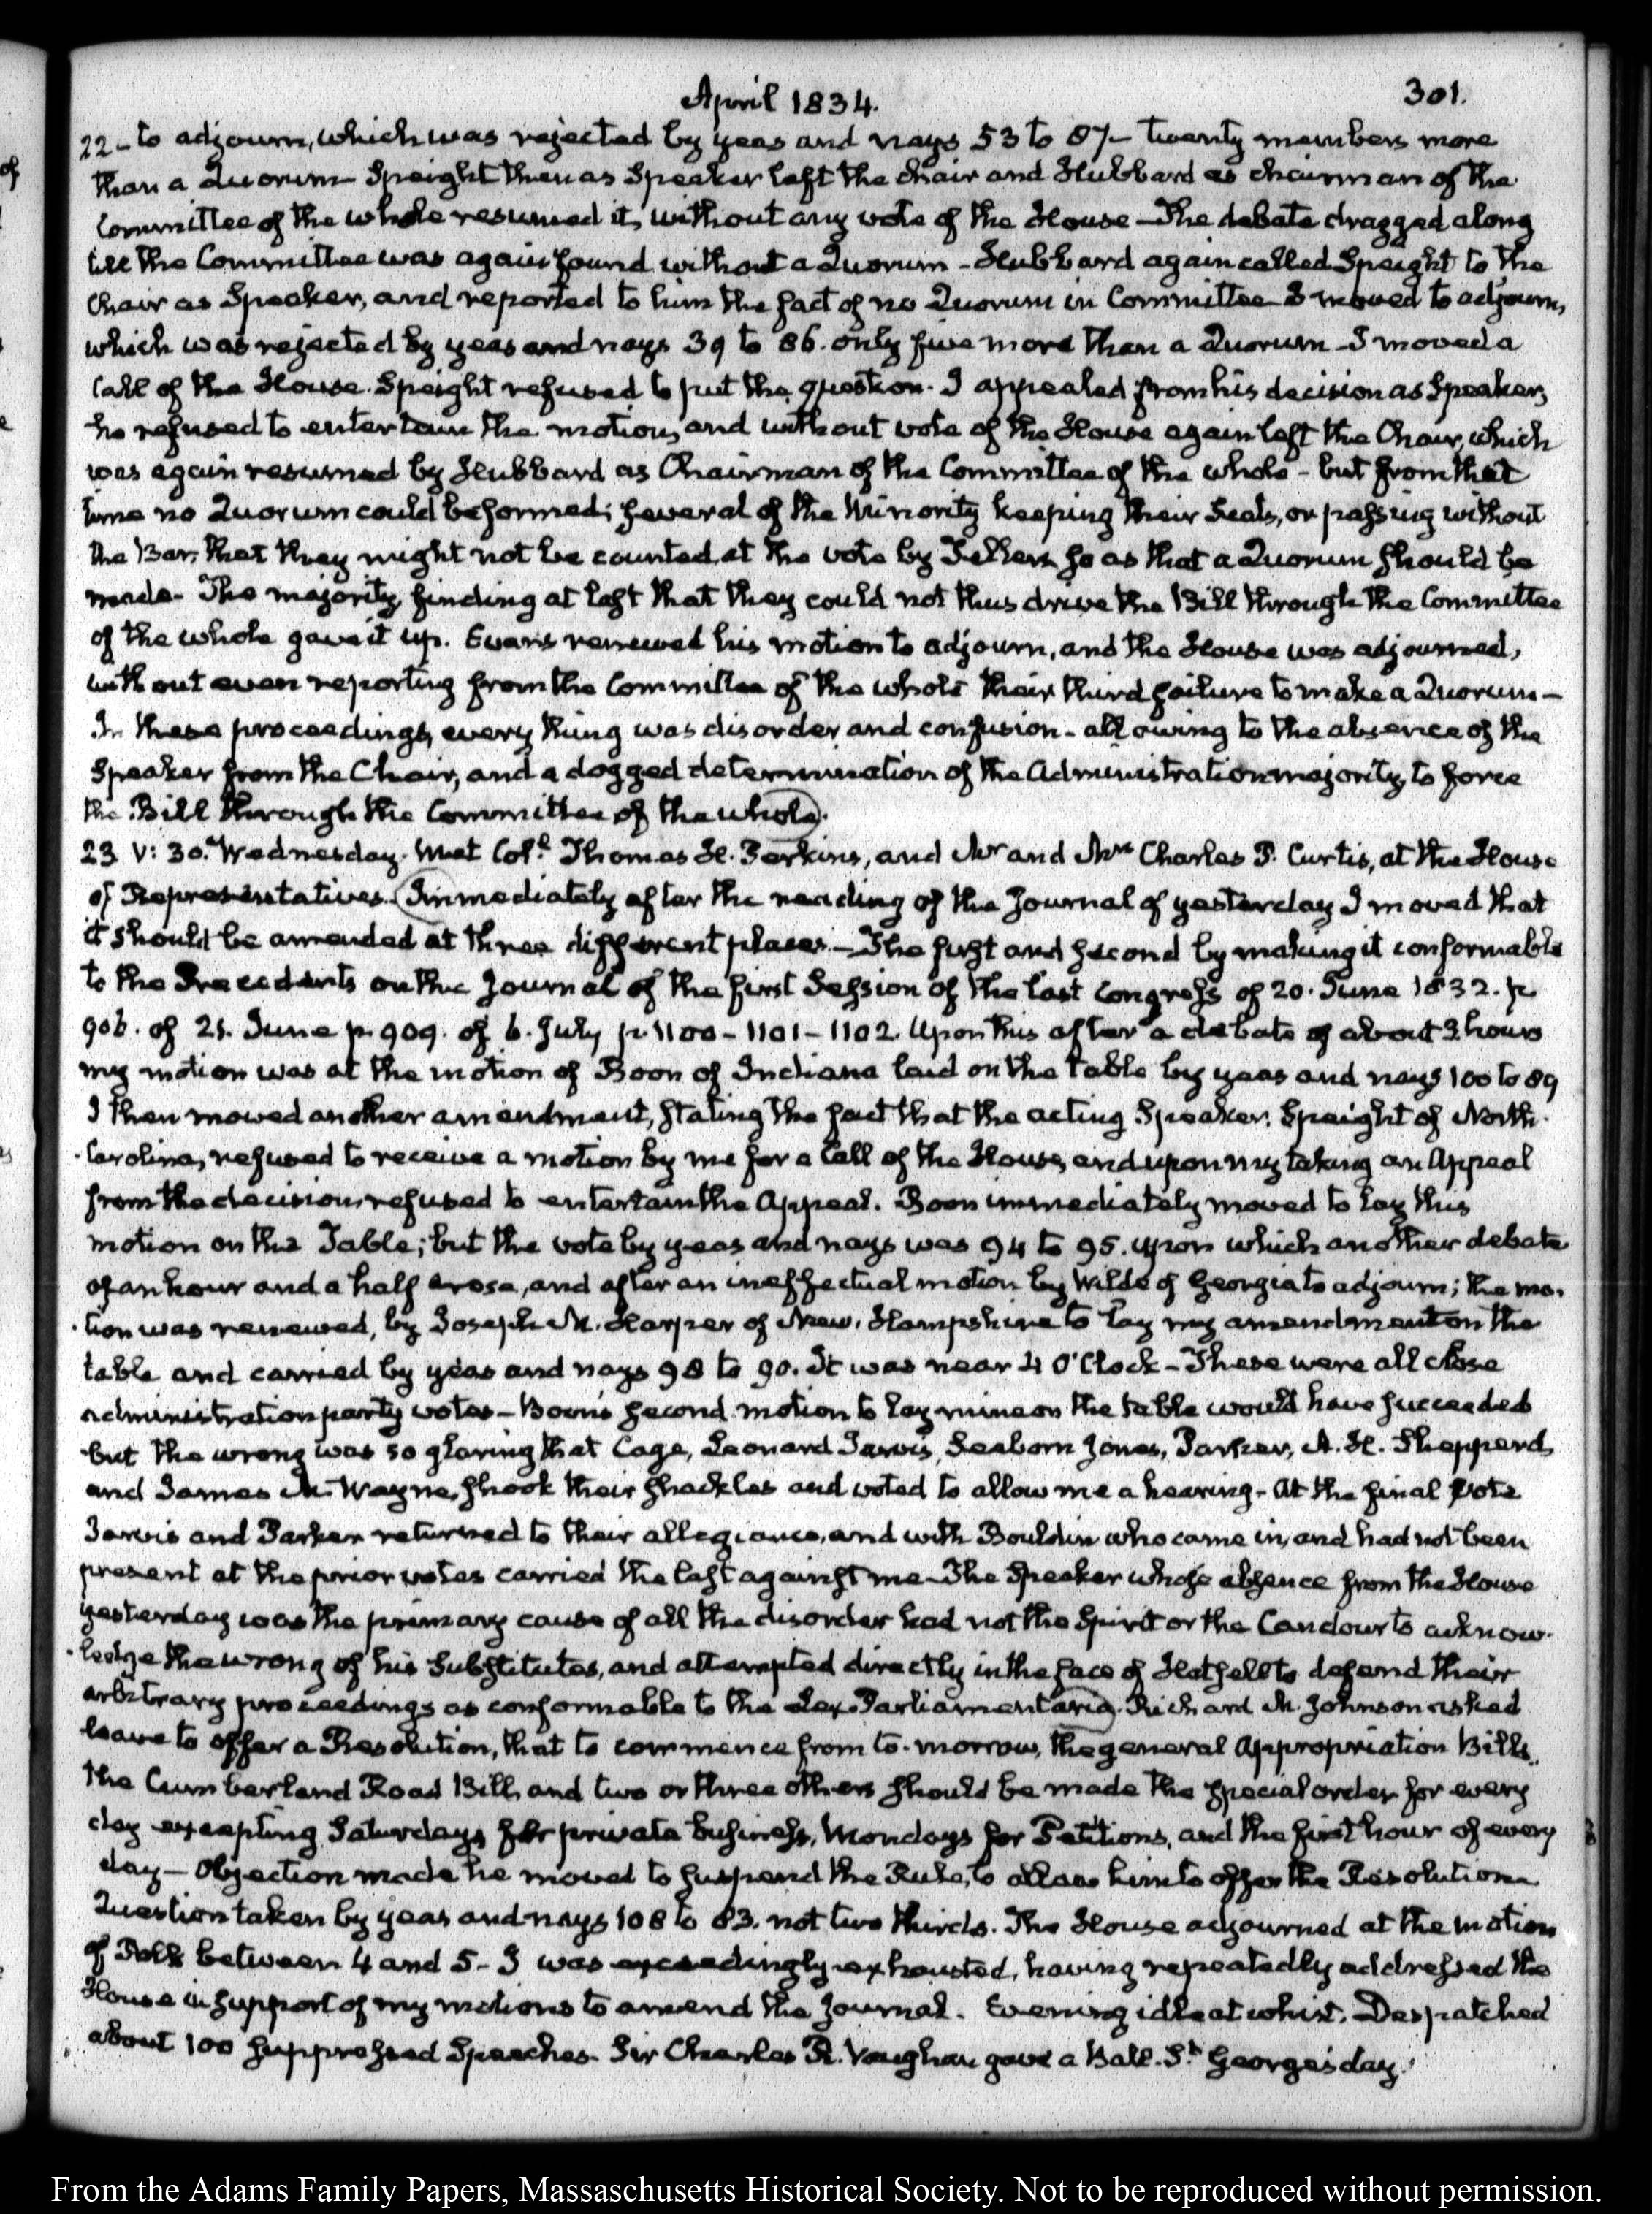 April 1834.
301.
22 - to adjourn, which was rejected by yeas and nays 53 to 87 - twenty members more
than a Quorum - Speight then as Speaker left the Chair and Hubbard as chairman of the
Committee of the whole resumed it, without any vote of the House - The debate dragged along
till the Committee was again found without a Quorum - Hubbard again called Speight to the
Chair as Speaker, and reported to him the fact of no Quorum in Committee I moved to adjourn,
which was rejected by yeas and nays 39 to 86. only five more than a Quorum - I moved a
Call of the House. Speight refused to put the question. I appealed from his decision as Speaker,
he refused to entertain the motion, and without vote of the House again left the Chair, which
was again resumed by Hubbard as Chairman of the Committee of the whole - but from that
time no Quorum could be formed; several of the Minority keeping their Seats, or passing without
the Bar, that they might not be counted at the vote by Tellers so as that a Quorum should be
made - The majority finding at last that they could not thus drive the Bill through the Committee
of the whole gave it up. Evans renewed his motion to adjourn, and the House was adjourned,
without even reporting from the Committee of the whole their third failure to make a Quorum -
In these proceedings, every thing was disorder and confusion - all owing to the absence of the
Speaker from the Chair, and a dogged determination of the Administration majority, to force
the Bill through the Committee of the whole.
23 V: 30. Wednesday. Met Colᵉ. Thomas H. Perkins, and Mr and Mrs Charles P. Curtis, at the House
of Representatives. Immediately after the reading of the Journal of yesterday I moved that
it should be amended at three different places - The first and second by making it conformable
to the Precedents on the Journal of the first Session of the last Congress of 20. June 1832. p.
906. of 21. June p. 909. of 6. July p. 1100 - 1101 - 1102. Upon this after a debate of about 3 hours
my motion was at the motion of Boon of Indiana laid on the table by yeas and nays 100 to 89
I then moved another amendment, stating the fact that the acting Speaker, Speight of North-
-Carolina, refused to receive a motion by me for a Call of the House, and upon my taking an Appeal
from the decision, refused to entertain the Appeal. Boon immediately moved to lay this
motion on the Table; but the vote by yeas and nays was 94 to 95. upon which another debate
of an hour and a half arose, and after an ineffectual motion by Wilde of Georgia to adjourn; the mo-
-tion was renewed, by Joseph M. Harper of New-Hampshire to lay my amendment on the
table and carried by yeas and nays 98 to 90. It was near 4 O'Clock - These were all close
administration party votes - Boon's second motion to lay mine on the table would have succeeded
but the wrong was so glaring that Cage, Leonard Jarvis, Seaborn Jones, Parker, A. H. Shepperd,
and James M. Wayne, shook their shackles and voted to allow me a hearing - At the final vote
Jarvis and Parker returned to their allegiance, and with Bouldin who came in, and had not been
present at the prior votes carried the last against me - The Speaker whose absence from the House
yesterday was the primary cause of all the disorder had not the Spirit or the Candour to acknow-
-ledge the wrong of his Substitutes, and attempted directly in the face of Hatsell to defend their
arbitrary proceedings as conformable to the Lex Parliamentaria. Richard M. Johnson asked
leave to offer a Resolution, that to commence from to-morrow, the general Appropriation Bills,
the Cumberland Road Bill, and two or three others should be made the special order for every
day excepting Saturdays for private business, Mondays for Petitions, and the first hour of every
day - Objection made he moved to suspend the Rule, to allow him to offer the Resolution
Question taken by yeas and nays 108 to 83. not two thirds. The House adjourned at the motion
of Polk between 4 and 5 - I was exceedingly exhausted, having repeatedly addressed the
House in support of my motions to amend the Journal. Evening idle at whist. Despatched
about 100 suppressed Speeches. Sir Charles R. Vaughan gave a Ball. St. George's day.
From the Adams Family Papers, Massachusetts Historical Society. Not to be reproduced without permission.